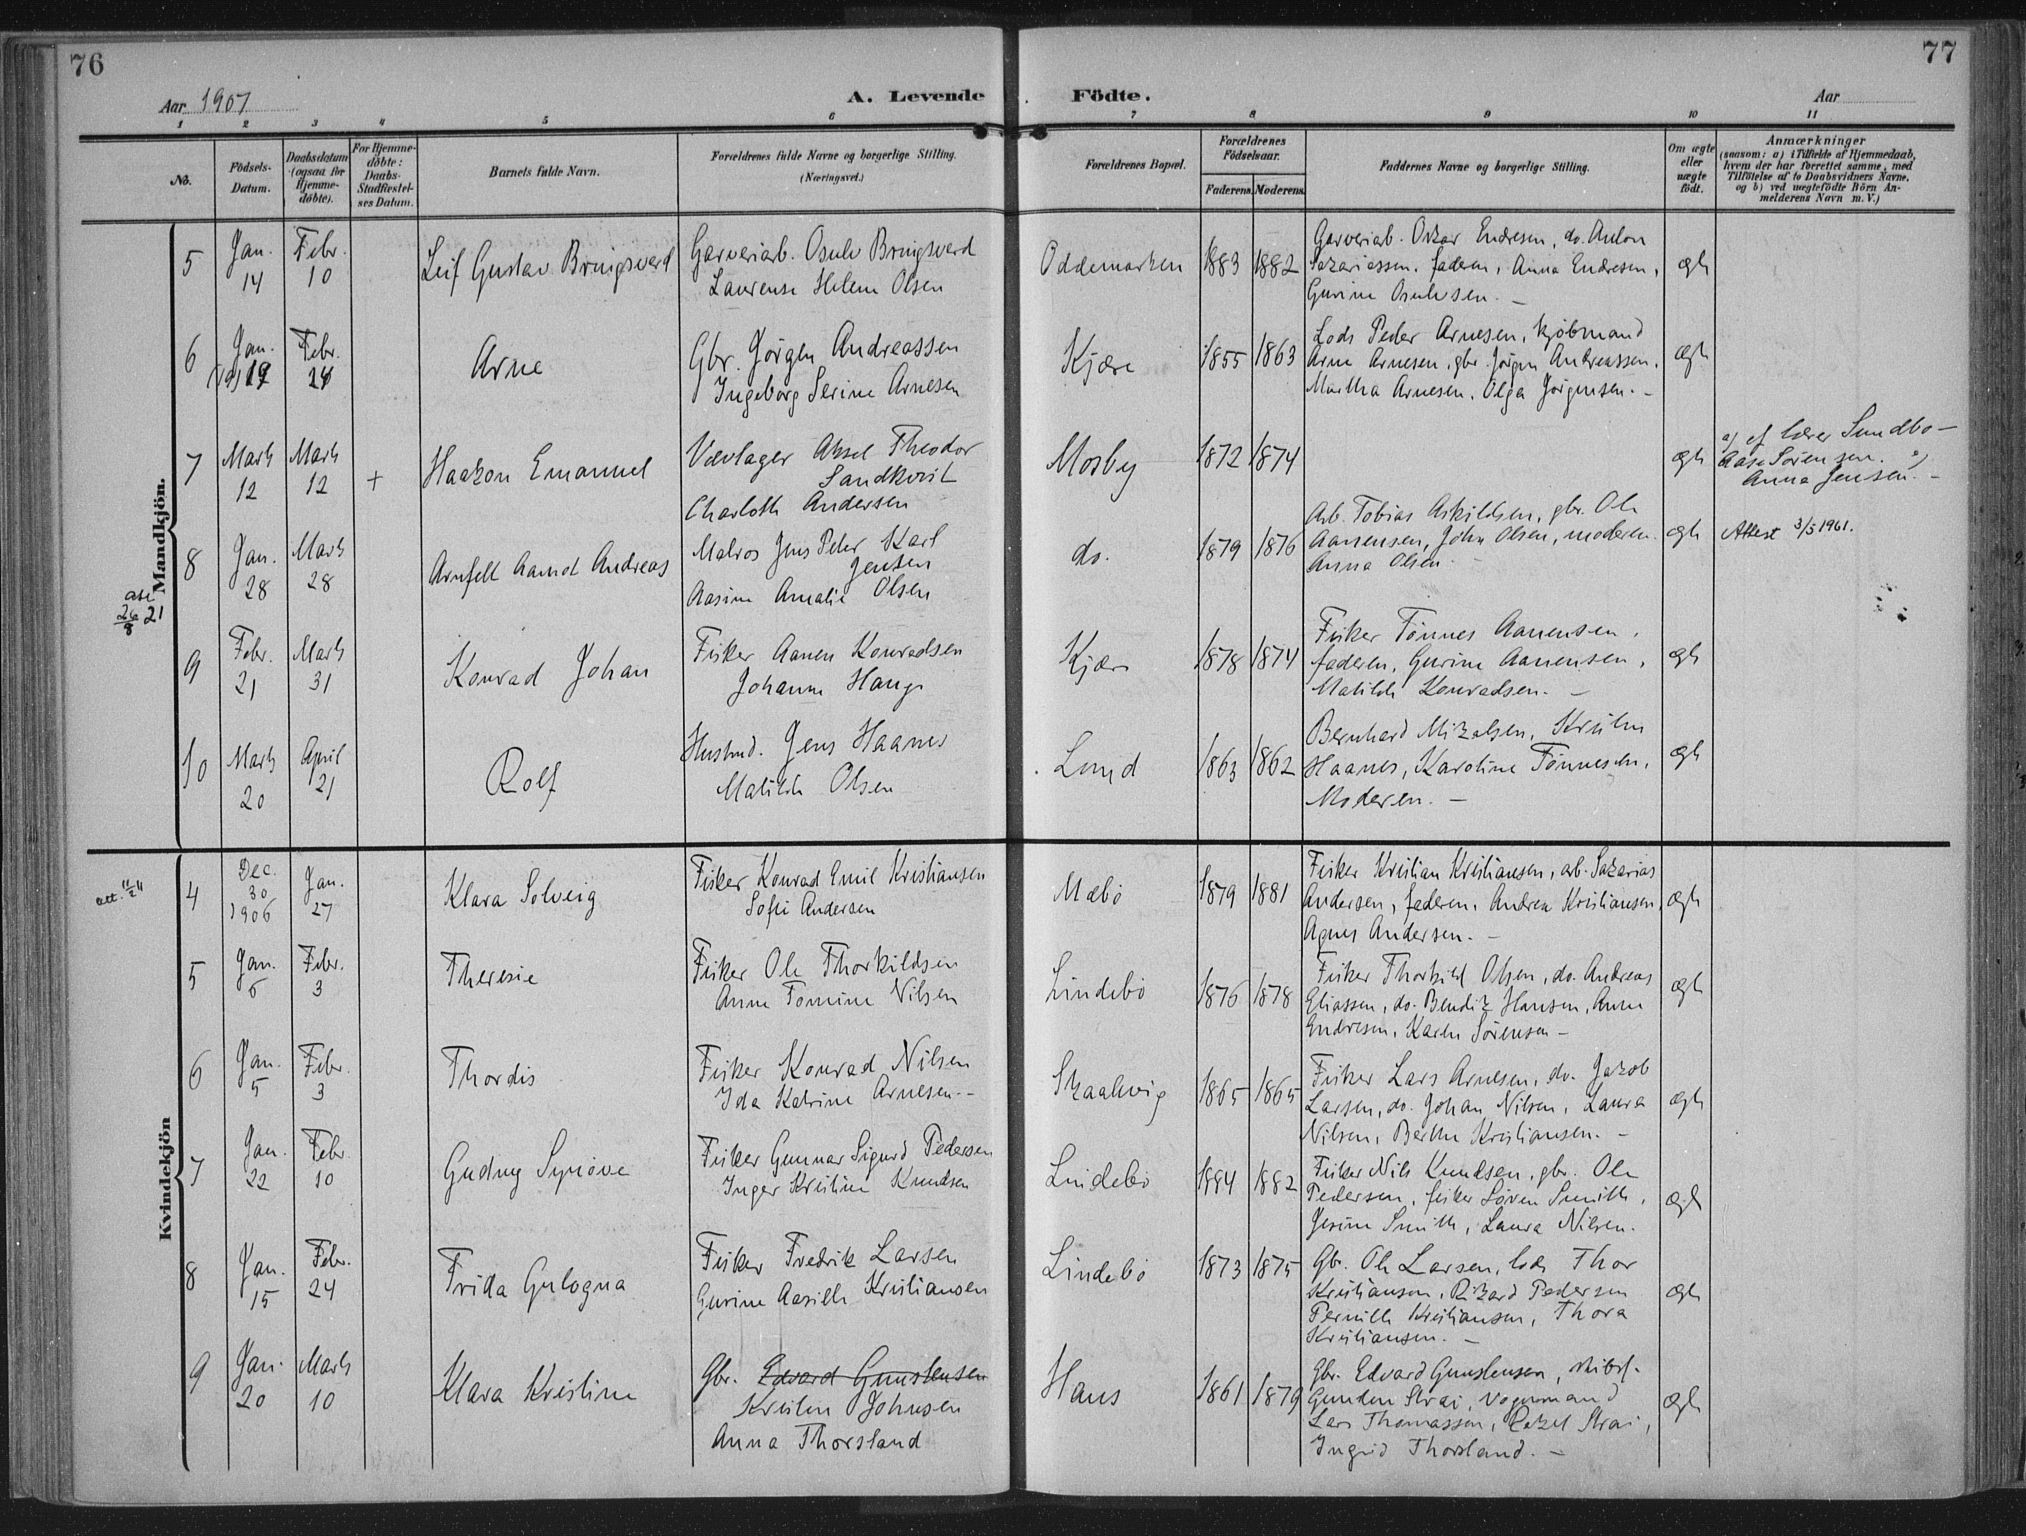 76
77
Aar 1907
A. Levende
Födte.
Aar
1 2 3 4 5 6 7 8 9 10 11
No.
Födsels-
Datum.
Daabsdatum
(ogsaa for
Hjemme-
döbte).
For Hjemme-
döbte:
Daabs-
Stadfæstel-
ses Datum.
Barnets fulde Navn.
Forældrenes fulde Navne og borgerlige Stilling.
(Næringsvei.)
Forældrenes Bopæl.
Forældrenes
Födselsaar.
Faderens. Moderens.
Faddernes Navne og borgerlige Stilling.
Om ægte
eller
uægte
födt.
Anmærkninger
(saasom: a) i Tilfælde af Hjemmedaab,
hvem der har forrettet samme, med
Tilföielse af to Daabsvidners Navne,
og b) ved uægtefödte Börn An-
melderens Navn m. V.)
Mandkjön.
5
Jan.
14
Febr.
10
Leif Gustav Bringsverd
Garveriarb. Osulv Bringsverd
Laurense Helene Olsen
Oddemarken
1883 1882
Garveriarb. Oskar Endresen, do. Anton
Sakariassen, faderen, Anna Endresen,
Gurine Osulvsen. –
ægte
6
Jan.
19
Febr.
24
Arne
Gbr. Jørgen Andreassen
Ingeborg Serine Arnesen
Kjære
1855 1863
Lods Peder Arnesen, kjøbmand
Arne Arnesen, gbr. Jørgen Andreassen,
Martha Arnesen, Olga Jørgensen. –
ægte
7
Marts
12
Marts
12
+
Haakon Emanuel
Vævlager Aksel Theodor
Sandkvist
Charlotte Andersen
Mosby
1872 1874
ægte
a) af lærer Sundbø –
Aase Sørensen.
Anna Jensen. –
8
Jan.
28
Marts
28
Arnfelt Aamot Andreas
Matros Jens Peter Karl
Jensen
Aasine Amalie Olsen
do.
1879 1876
Arb. Tobias Askildsen, gbr. Ole
Aanensen, John Olsen, moderen
Anna Olsen. –
ægte
Attest 3/5 1961.
26/8 21
9
Febr.
21
Marts
31
Konrad Johan
Fisker Aanen Konradsen
Johanne Hauge
Kjære
1878 1874
Fisker Tønnes Aanensen,
faderen, Gurine Aanensen,
Matilde Konradsen. –
ægte
10
Marts
20
April
21
Rolf
Husmd. Jens Haanes
Matilde Olsen
Lund
1863 1862
Bernhard Mikalsen, Kristen
Haanes, Karoline Tønnesen,
Moderen. –
ægte
Kvindekjön
att. 11/2 21
4
Dec.
30
1906
Jan.
27
Klara Solveig
Fisker Konrad Emil Kristiansen
Sofie Andersen
Mæbø
1879 1881
Fisker Kristian Kristiansen, arb. Sakarias
Andersen, faderen, Andrea Kristiansen,
Agnes Andersen. –
ægte
5
Jan.
6
Febr.
3
Theresie
Fisker Ole Thorkildsen
Anne Tomine Nilsen
Lindebø
1876 1878
Fisker Thorkild Olsen, do. Andreas
Eliassen, do. Bendik Hansen, Anne
Endresen, Karen Sørensen –
ægte
6
Jan.
5
Febr.
3
Thordis
Fisker Konrad Nilsen
Ida Katrine Arnesen. –
Skaalevig
1865 1865
Fisker Lars Arnesen, do. Jakob
Larsen, do. Johan Nilsen, Laura
Nilsen, Berthe Kristiansen. –
ægte
7
Jan.
22
Febr.
10
Gudny Synøve
Fisker Gunnar Sigurd Pedersen
Inger Kristine Knudsen
Lindebø
1884 1882
Fisker Nils Knudsen, gbr. Ole
Pedersen, fisker Søren Smith,
Jesine Smith, Laura Nilsen.
ægte
8
Jan.
15
Febr.
24
Frida Gulogna
Fisker Fredrik Larsen
Gurine Aasille Kristiansen
Lindebø
1873 1875
Gbr. Ole Larsen, lods Thor
Kristiansen, Rikard Pedersen
Pernille Kristiansen, Thora
Kristiansen. –
ægte
9
Jan.
20
Marts
10
Klara Kristine
Gbr. Edvard Gunstensen
Kristen Johnsen
Anna Thorsland
Haus
1861 1879
Gbr. Edvard Gunstensen, skibsf.
Gunden Strai, vognmand
Lars Thomassen, Rakel Strai,
Ingrid Thorsland. –
ægte